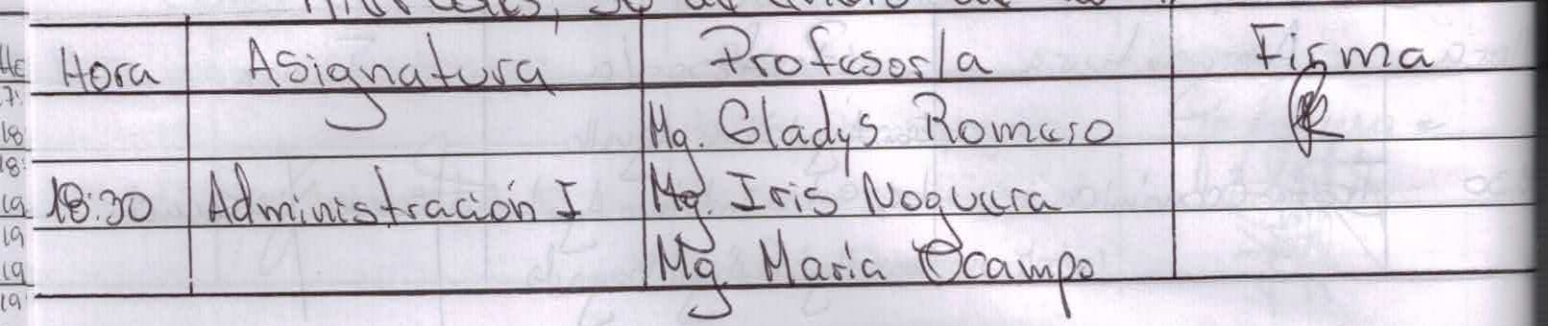 Hora Asignatura Profesor/a Firma
Mg. Gladys Romero
18:30 Administración I Mg. Iris Noguera
Mg. Maria Ocampo